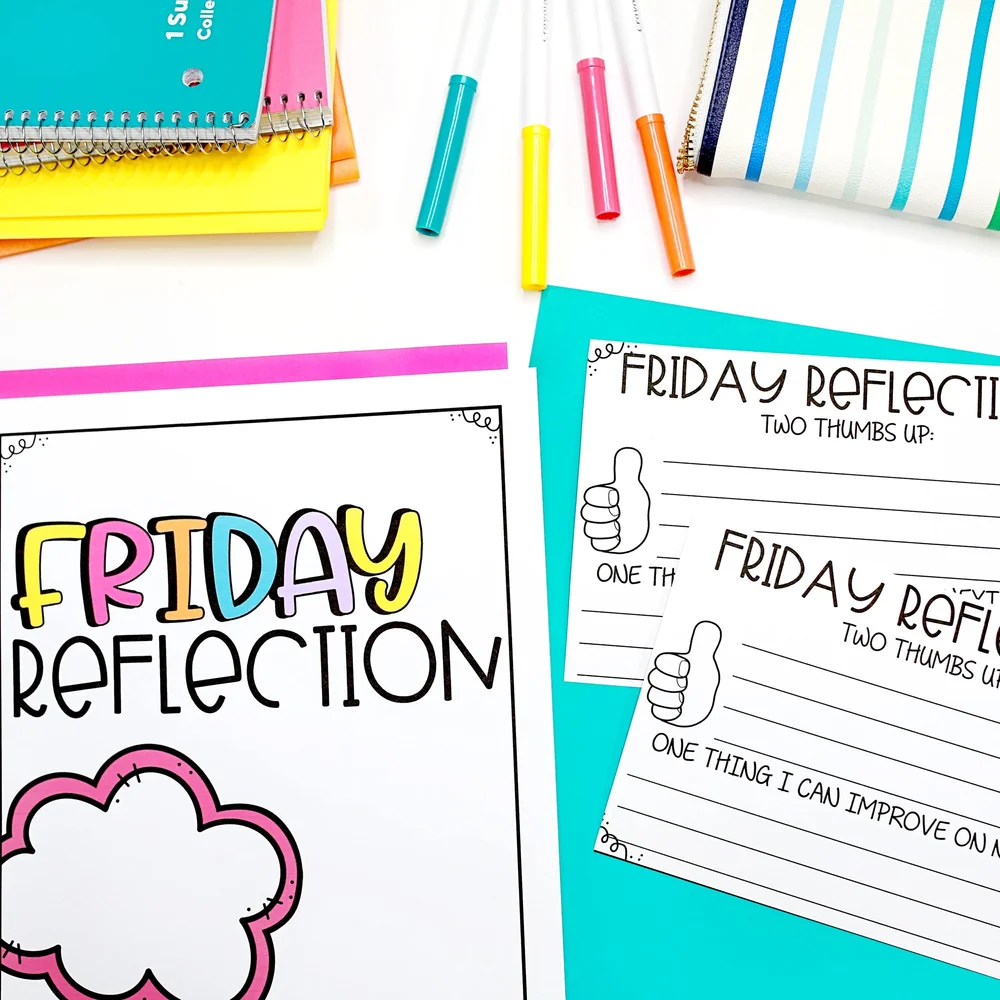 1 Su
Colle
FRIDAY
REFLECTION
FRIDAY REFLECTI
TWO THUMBS UP:
ONE TH
FRIDAY REFLE
TWO THUMBS UP
ONE THING I CAN IMPROVE ON N